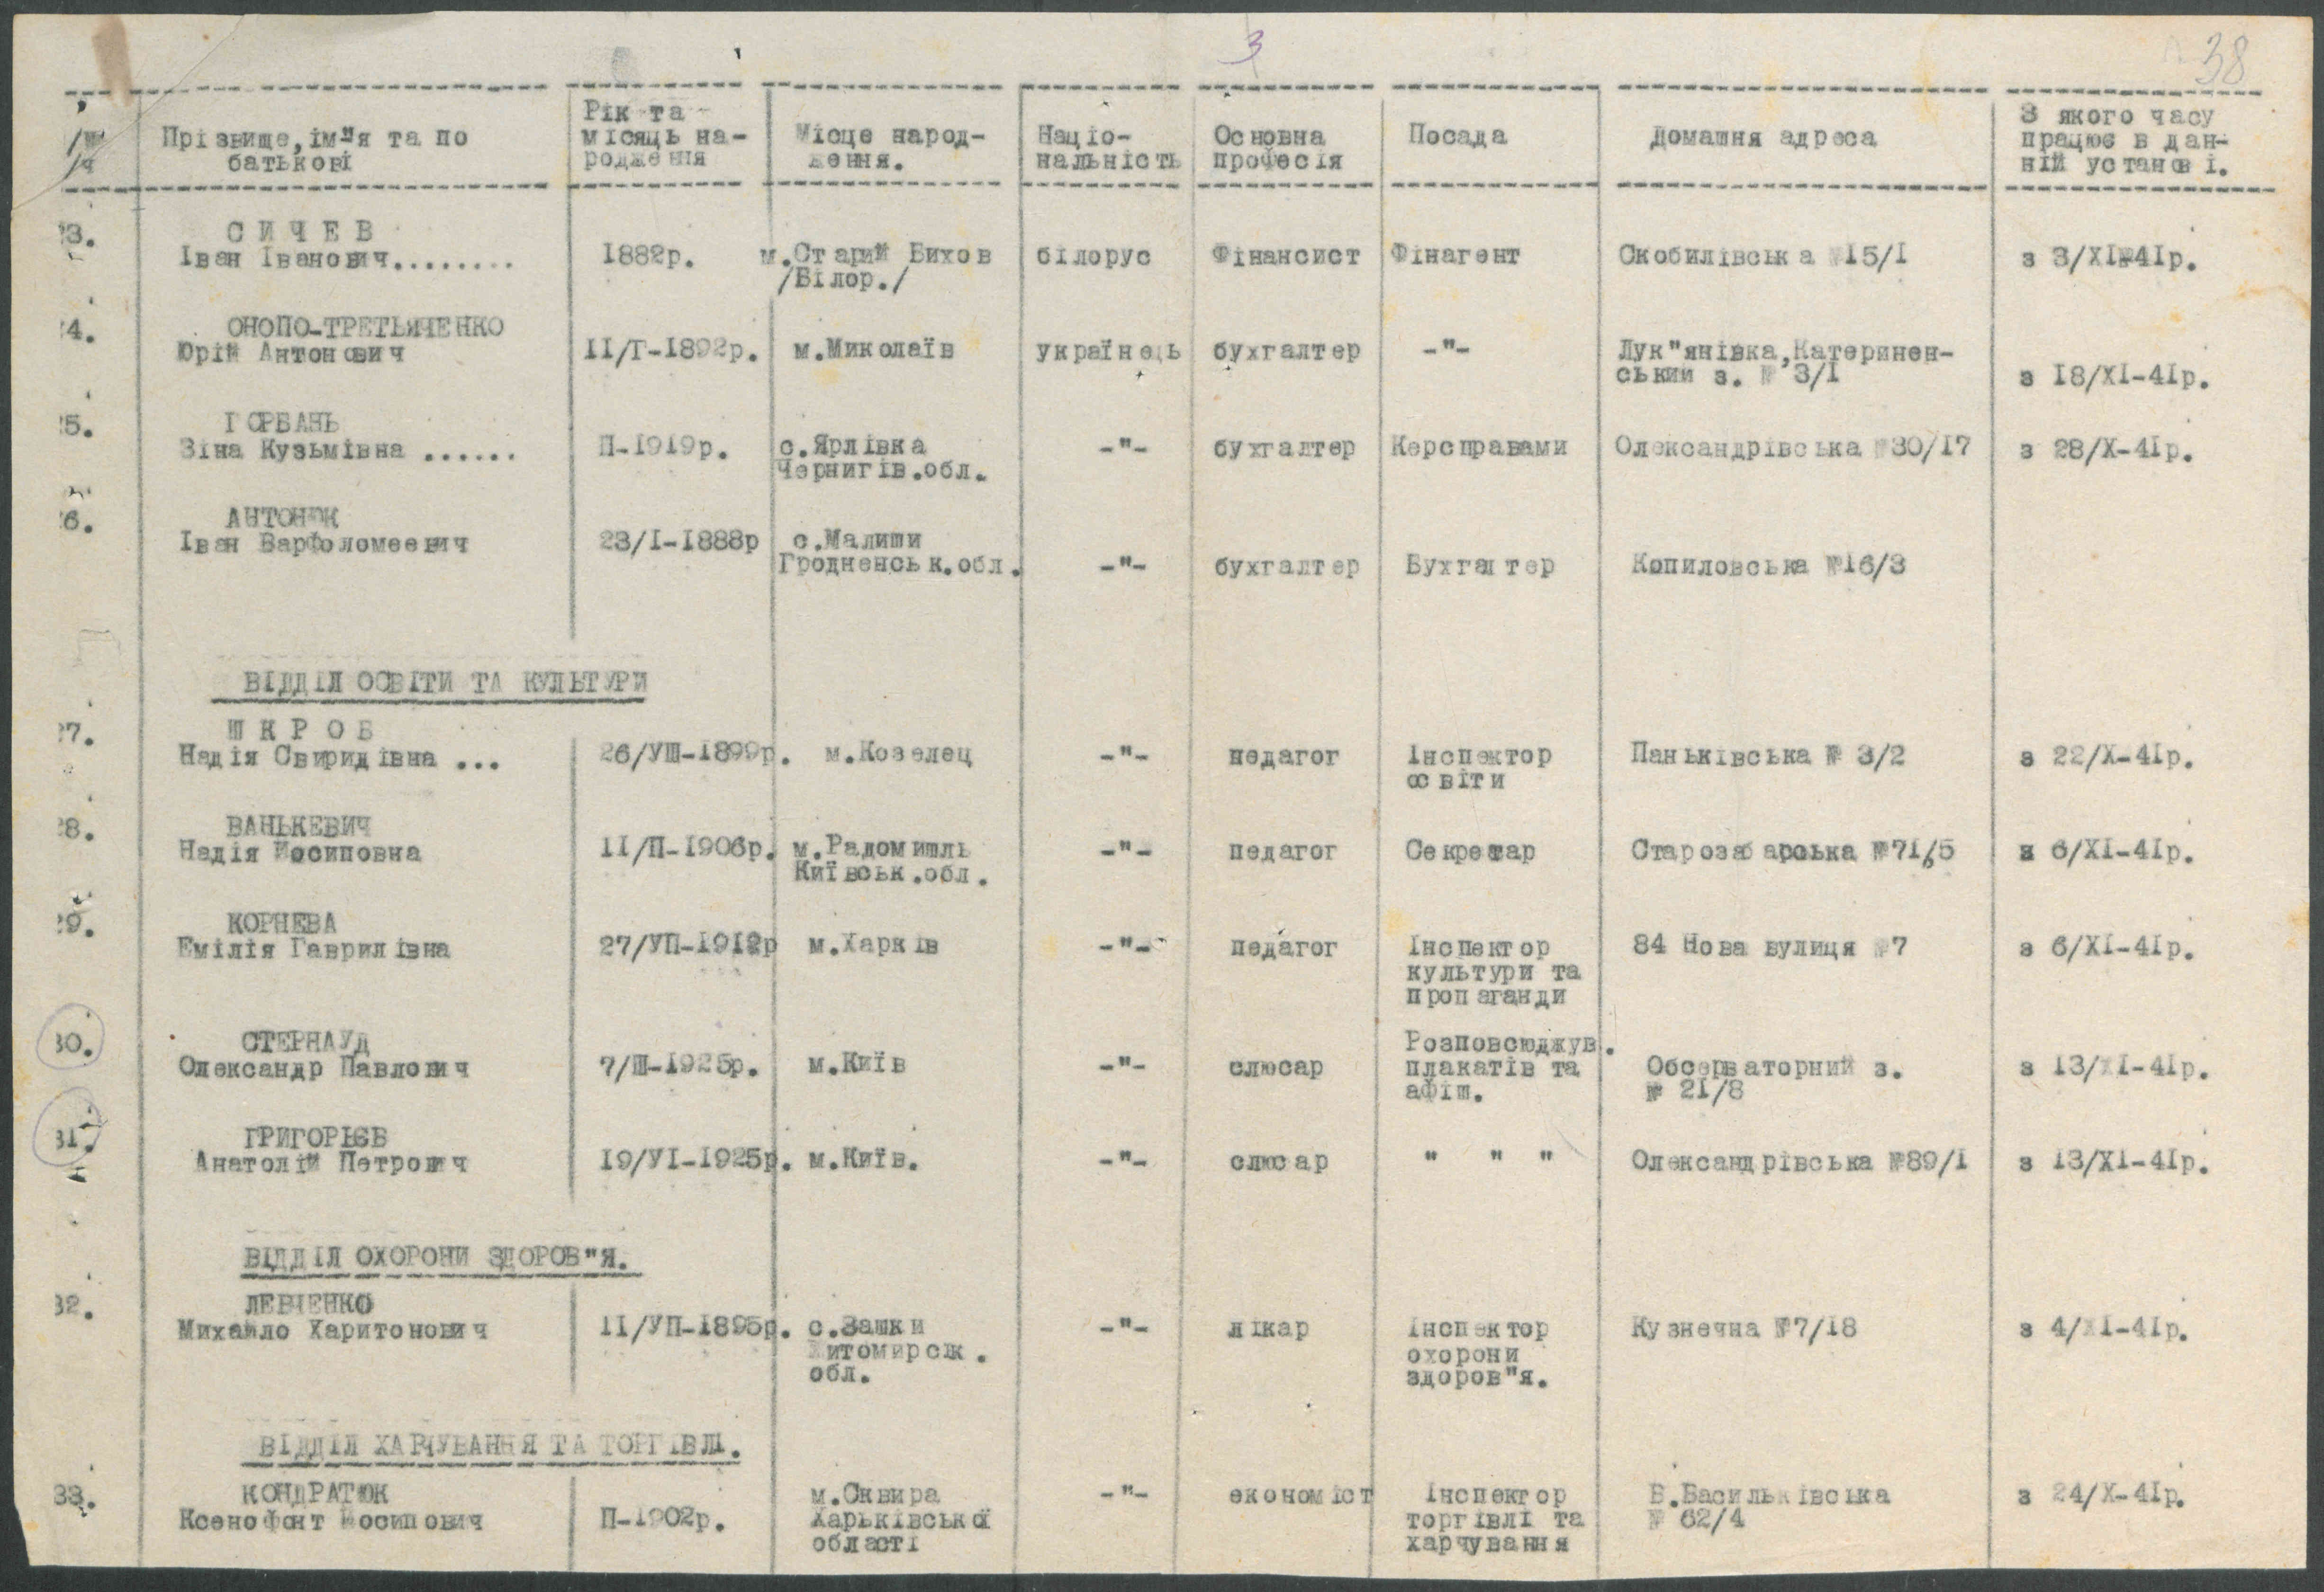 3
38
Прізвище, ім"я та по батькові
Рік та місяць народження
Місце народ-ження.
Націо-нальність
Основна професія
Посада
Домашня адреса
З якого часу працює в дан-ній установі.
23. СИЧЕВ
Іван Іванович........ 1882р. м.Старий Бихов білорус Фінансист Фінагент Скобилівська №15/1 з 3/XI-41р.
/Білор./
24. ОНОПО-ТРЕТЬЯЧЕНКО
Юрій Антонович 11/Г-1892р. м.Миколаїв українець бухгалтер -"- Лук"янівка, Катеринен-
ський з. № 3/1 з 18/XI-41р.
25. ГОРБАНЬ
Зіна Кузьмівна ...... П-1919р. с.Ярлівка -"- бухгалтер Керсправами Олександрівська №30/17 з 28/X-41р.
Чернигів.обл.
26. АНТОНЮК
Іван Варфоломеевич 23/I-1888р с.Малиши
Гродненськ.обл. -"- бухгалтер Бухгалтер Копиловська №16/3
ВІДДІЛ ОСВІТИ ТА КУЛЬТУРИ
27. ШКРОБ
Надія Свиридівна ... 26/УШ-1899р. м.Козелец -"- педагог Інспектор Паньківська № 3/2 з 22/X-41р.
освіти
28. ВАНЬКЕВИЧ
Надія Йосиповна 11/П-1906р. м.Радомишль -"- педагог Секретар Старозабарська №71/5 з 6/XI-41р.
Київськ.обл.
29. КОРНЕВА
Емілія Гаврилівна 27/УП-1912р м.Харків -"- педагог Інспектор 84 Нова вулиця №7 з 6/XI-41р.
культури та
пропаганди
30. СТЕРНАУД Розповсюджув.
Олександр Павлович 7/Ш-1925р. м.Київ -"- слюсар плакатів та Обсерваторний з. з 13/XI-41р.
афіш. № 21/8
31. ГРИГОРЬЄВ
Анатолій Петрович 19/УІ-1925р. м.Київ. -"- слюсар " " " Олександрівська №89/1 з 13/XI-41р.
ВІДДІЛ ОХОРОНИ ЗДОРОВ"Я.
32. ЛЕВЧЕНКО
Михайло Харитонович 11/УП-1895р. с.Зашки -"- лікар Інспектор Кузнечна №7/18 з 4/XI-41р.
Житомирськ. охорони
обл. здоров"я.
ВІДДІЛ ХАРЧУВАННЯ ТА ТОРГІВЛІ.
33. КОНДРАТЮК м.Сквира -"- економіст Інспектор В.Васильківська з 24/X-41р.
Ксенофонт Йосипович П-1902р. Харьківської торгівлі та № 62/4
області харчування